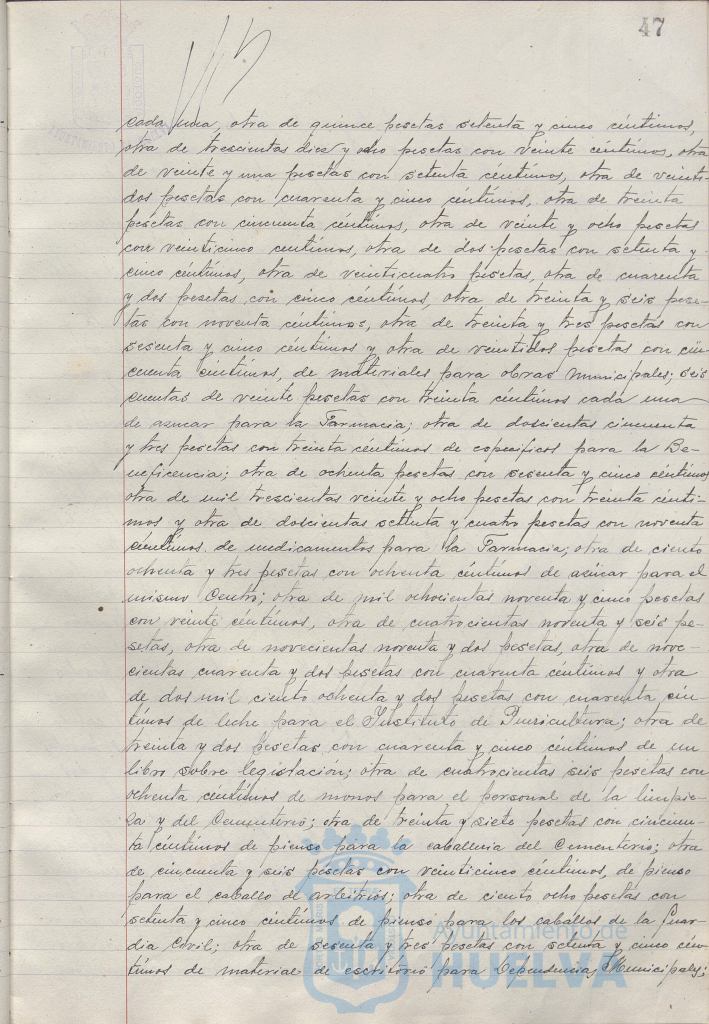 47
cada una, otra de quince pesetas setenta y cinco céntimos,
otra de trescientas diez y ocho pesetas con veinte céntimos, otra
de veinte y una pesetas con setenta céntimos, otra de veinti-
dos pesetas con cuarenta y cinco céntimos, otra de treinta
pesetas con cincuenta céntimos, otra de veinte y ocho pesetas
con veinticinco centimos, otra de dos pesetas con setenta y
cinco céntimos, otra de veinticuatro pesetas, otra de cuarenta
y dos pesetas con cinco céntimos, otra de treinta y seis pese-
tas con noventa céntimos, otra de treinta y tres pesetas con
sesenta y cinco céntimos y otra de veintidos pesetas con cin-
cuenta céntimos, de materiales para obras municipales; seis
cuentas de veinte pesetas con treinta céntimos cada una
de azucar para la Farmacia; otra de doscientas cincuenta
y tres pesetas con treinta céntimos de especificos para la Be-
neficencia; otra de ochenta pesetas con sesenta y cinco céntimos
otra de mil trescientas veinte y ocho pesetas con treinta cénti-
mos y otra de doscientas setenta y cuatro pesetas con noventa
céntimos de medicamentos para la Farmacia; otra de ciento
ochenta y tres pesetas con ochenta céntimos de azúcar para el
mismo Centro; otra de mil ochocientas noventa y cinco pesetas
con veinte céntimos, otra de cuatrocientas noventa y seis pe-
setas, otra de novecientas noventa y dos pesetas, otra de nove-
cientas cuarenta y dos pesetas con cuarenta céntimos y otra
de dos mil ciento ochenta y dos pesetas con cuarenta cén-
timos de leche para el Instituto de Puericultura; otra de
treinta y dos pesetas con cuarenta y cinco céntimos de un
libro sobre legislación; otra de cuatrocientas seis pesetas con
ochenta céntimos de monos para el personal de la limpie-
za y del Cementerio; otra de treinta y siete pesetas con cincuen-
ta céntimos de pienso para la caballeria del Cementerio; otra
de cincuenta y seis pesetas con veinticinco céntimos, de pienso
para el caballo de arbitrios; otra de ciento ocho pesetas con
setenta y cinco céntimos de pienso para los caballos de la Guar-
dia Civil; otra de sesenta y tres pesetas con setenta y cinco cén-
timos de material de escritorio para Dependencias Municipales;
Ayuntamiento de
HUELVA